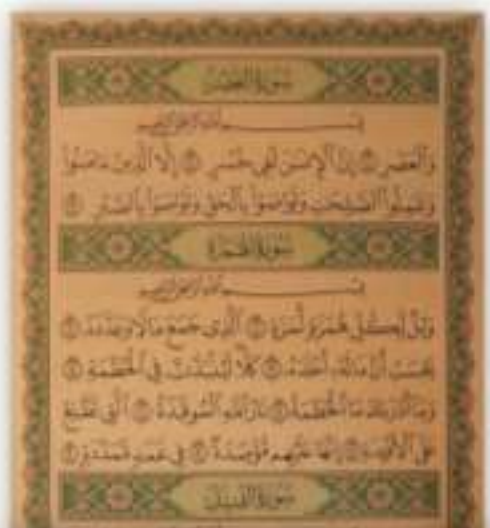 سورة العصر
بسم الله الرحمن الرحيم
والعصر ۝١ إن الإنسن لفى خسر ۝٢ إلا الذين ءامنوا
وعملوا الصلحت وتواصوا بالحق وتواصوا بالصبر ۝٣
سورة الهمزة
بسم الله الرحمن الرحيم
ويل لكل همزة لمزة ۝١ الذى جمع مالا وعدده ۝٢
يحسب أن ماله أخلده ۝٣ كلا لينبذن فى الحطمة ۝٤
وما أدرىك ما الحطمة ۝٥ نار الله الموقدة ۝٦ التى تطلع
على الأفئدة ۝٧ إنها عليهم مؤصدة ۝٨ فى عمد ممددة ۝٩
سورة الفيل